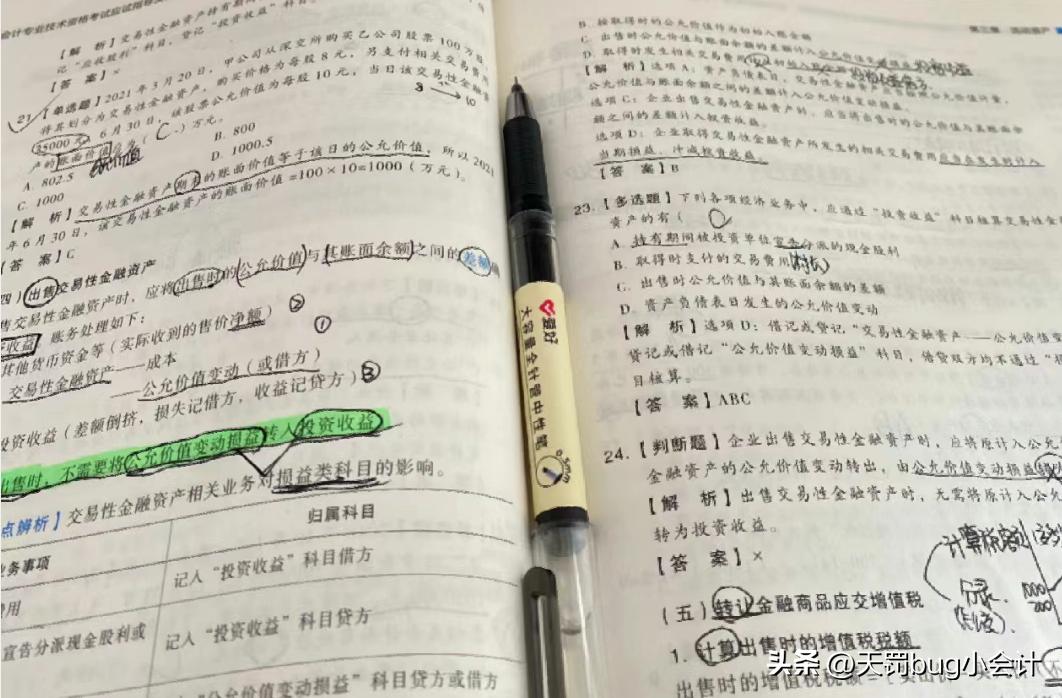 会计专业技术资格考试应试指导
【解 析】交易性金融资产持有期间
记“应收股利”科目，贷记“投资收益”科目。
【答 案】×
21.【单选题】2021年3月20日，甲公司从深交所购买乙公司股票100万股，
将其划分为交易性金融资产，购买价格为每股8元，另支付相关交易费用
25000元。6月30日，该股票公允价值为每股10元，当日该交易性金融资
产的账面价值为（C）万元。
8→10
公允价值
A. 802.5
B. 800
C. 1000
D. 1000.5
【解 析】交易性金融资产期末的账面价值等于该日的公允价值，所以2021
年6月30日，该交易性金融资产的账面价值=100×10=1000（万元）。
【答 案】C
四）出售交易性金融资产
售交易性金融资产时，应将出售时的公允价值与其账面余额之间的差额
收益 账务处理如下：
其他货币资金等（实际收到的售价净额）②
①
交易性金融资产——成本
——公允价值变动（或借方）
投资收益（差额倒挤，损失记借方，收益记贷方）③
出售时，不需要将公允价值变动损益转入投资收益
点辨析】交易性金融资产相关业务对损益类科目的影响。
业务事项
归属科目
费用
记入“投资收益”科目借方
宣告分派现金股利或
记入“投资收益”科目贷方
“公允价值变动损益”科目贷方或借方
第三章 流动资产
B. 按取得时的公允价值作为初始入账金额
C. 出售时公允价值与账面余额的差额计入公允价值变动损益
D. 取得时发生相关交易费用计入初始入账金额
【解 析】选项A：资产负债表日，交易性金融资产应当按照公允价值计量，
公允价值与账面余额之间的差额计入公允价值变动损益。
选项C：企业出售交易性金融资产时，应当将出售时的公允价值与其账面余
额之间的差额计入投资收益。
选项D：企业取得交易性金融资产所发生的相关交易费用应当在发生时计入
当期损益，冲减投资收益。
【答 案】B
23.【多选题】下列各项经济业务中，应通过“投资收益”科目核算交易性金
资产的有（
A. 持有期间被投资单位宣告分派的现金股利
B. 取得时支付的交易费用
C. 出售时公允价值与其账面余额的差额
D. 资产负债表日发生的公允价值变动
【解 析】选项D：借记或贷记“交易性金融资产——公允价值变
贷记或借记“公允价值变动损益”科目，借贷双方均不通过“投
目核算。
【答 案】ABC
24.【判断题】企业出售交易性金融资产时，应将原计入公允
金融资产的公允价值变动转出，由公允价值变动损益
【解 析】出售交易性金融资产时，无需将原计入公允
转为投资收益。
【答 案】×
计算税额
分录
1000
200
（五）转让金融商品应交增值税
1. 计算出售时的增值税税额
出售时的增值税税额
爱好
大容量全针管中性笔
0.5mm
头条 @天罚bug小会计